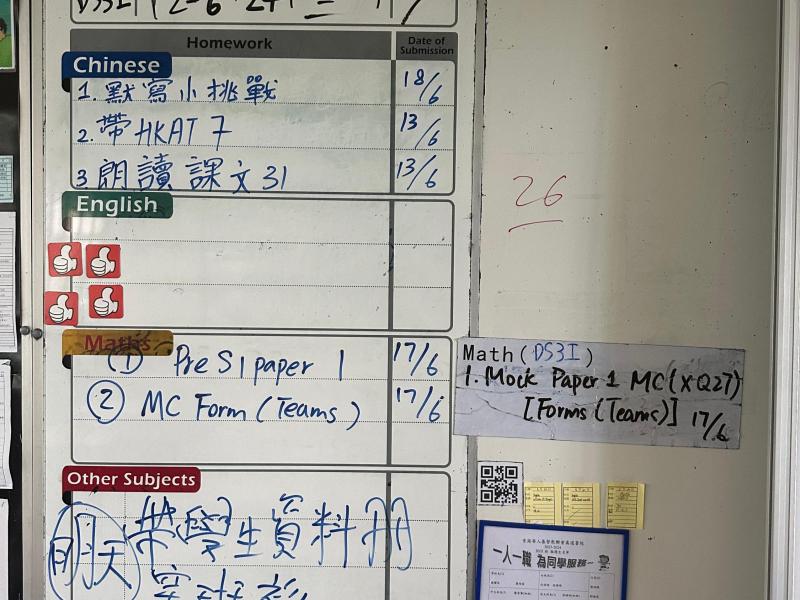 Homework Date of Submission
Chinese
1. 默寫小挑戰 18/6
2. 帶HKAT 7 13/6
3 朗讀課文31 13/6
English
26
Maths
① Pre S1 paper 1 17/6
② MC Form (Teams) 17/6
Math (DS3I)
1. Mock Paper 1 MC (X Q27)
[Forms (Teams)] 17/6
Other Subjects
明天 帶學生資料冊
一人一職 為同學服務